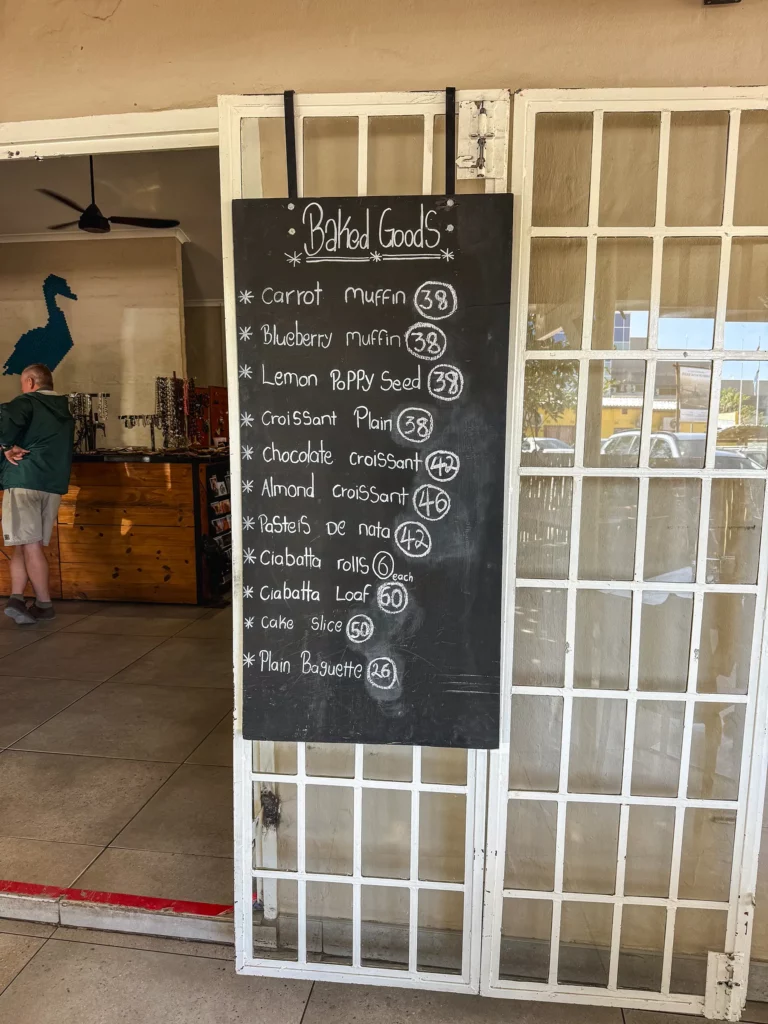 Baked Goods
* Carrot muffin 38
* Blueberry muffin 38
* Lemon Poppy Seed 38
* Croissant Plain 38
* Chocolate croissant 42
* Almond croissant 46
* Pasteis De nata 42
* Ciabatta rolls 6 each
* Ciabatta Loaf 60
* Cake Slice 50
* Plain Baguette 26